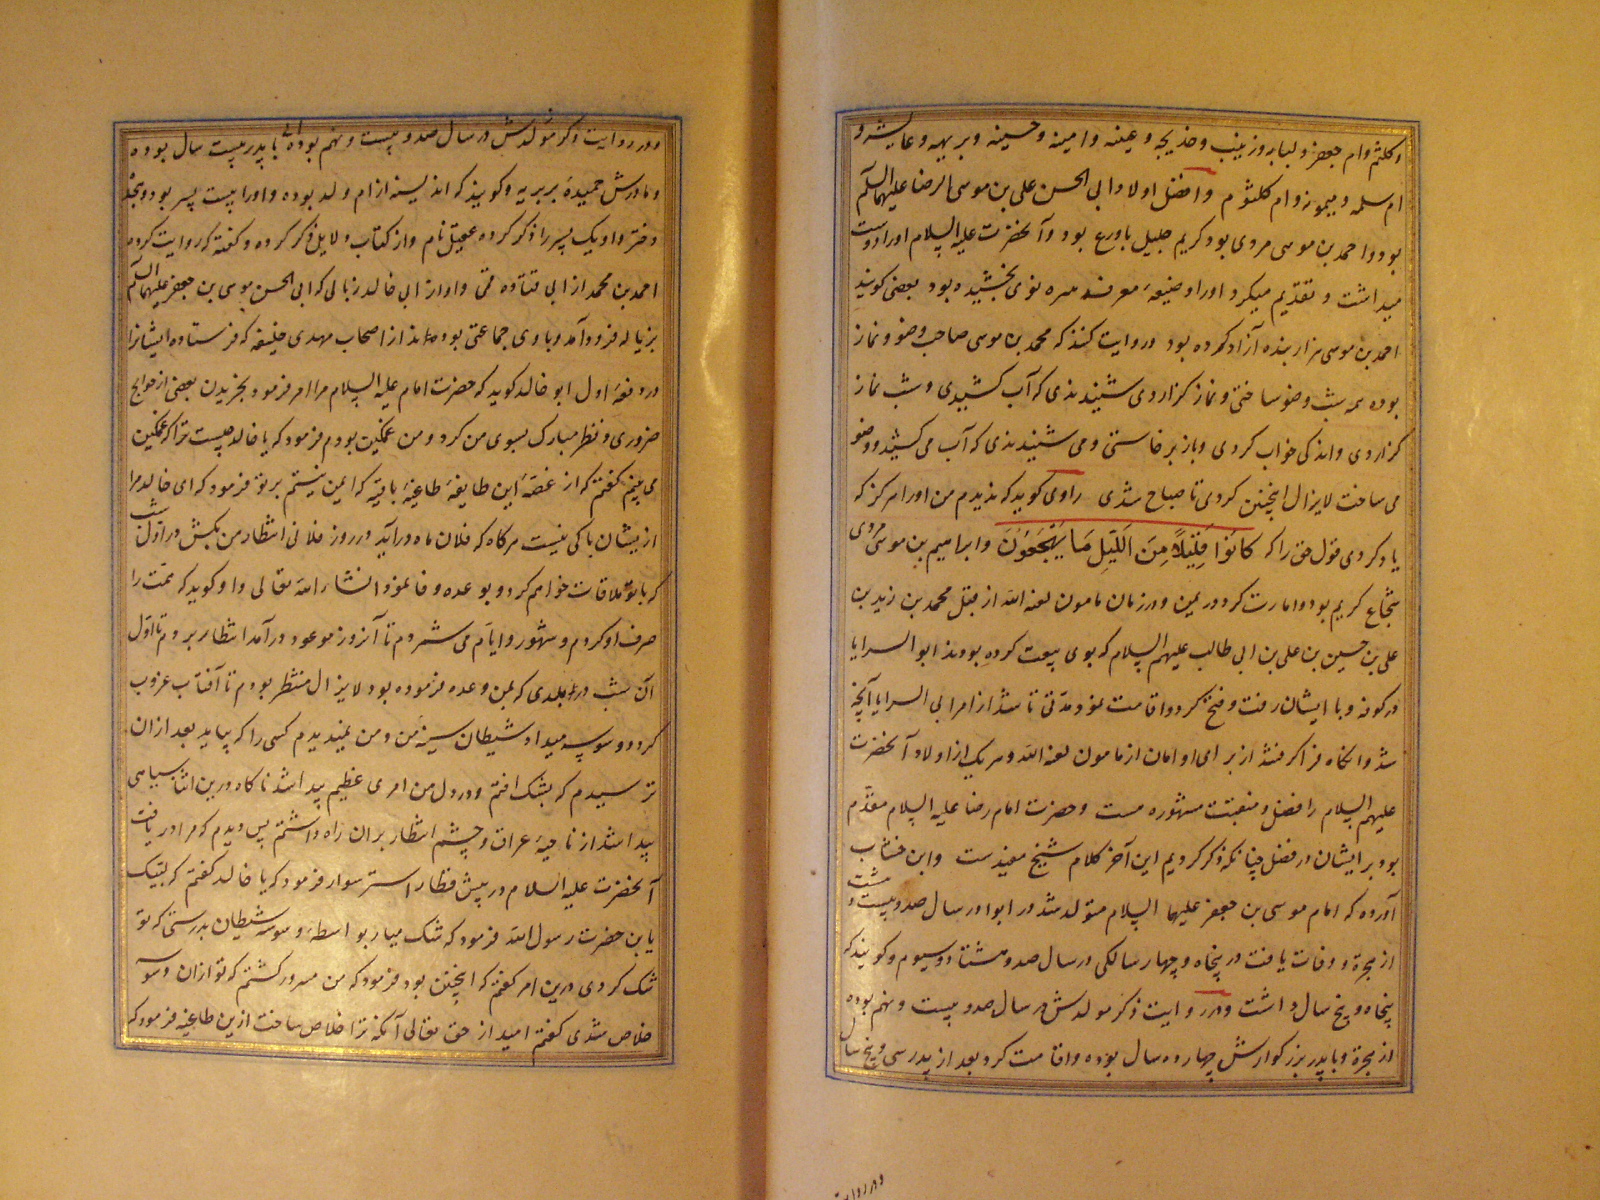 و کلثم و ام جعفر و لبابه و زینب و خدیجه و علیه و امینه و حسینه و بریهه و عایشه و
ام سلمه و میمونه و ام کلثوم و افضل اولاد ابی الحسن علی بن موسی الرضا علیهما السلام
بود و احمد بن موسی مردی بود کریم جلیل با ورع بود و آنحضرت علیه السلام او را دوست
میداشت و تقدیم میکرد و او را وضیعه معروفه بوی بخشیده بود بعضی کویند
احمد بن موسی هزار بنده آزاد کرده بود و روایت کنند که محمد بن موسی صاحب وضو و نماز
بوده همه شب وضو ساختی و نماز کزاردی شنیدندی که آب کشیدی و شب نماز
کزاردی و اندکی خواب کردی و باز برخاستی و می شنیدندی که آب می کشید و وضو
می ساخت لایزال اینچنین کردی تا صباح شدی راوی کوید که ندیدم من او را هرکز که
یاد کردی قول حق را که کانوا قلیلا من اللیل ما یهجعون و ابراهیم بن موسی مردی
شجاع کریم بود و امارت کرد در یمن در زمان مامون لعنه الله از قبل محمد بن زید بن
علی بن حسین بن علی بن ابی طالب علیهم السلام که بوی بیعت کرده بودند ابو السرایا
در کوفه و با ایشان رفت و فتح کرد و اقامت نمود مدتی تا شد از امر ابی السرایا آنچه
شد و آنکاه فرا کرفتند از برای او امان از مامون لعنه الله و هر یک از اولاد آنحضرت
علیهم السلام را فضل و منقبت مشهوره هست و حضرت امام رضا علیه السلام مقدم
بود بر ایشان در فضل چنانکه ذکر کردیم این آخر کلام شیخ مفیدست و ابن خشاب
آورده که امام موسی بن جعفر علیهما السلام متولد شد در ابوا در سال صد و بیست و هشت
از هجرة و وفات یافت در پنجاه و چهار سالکی در سال صد و هشتاد و سیوم و کویند که
پنجاه و پنج سال داشت و در روایت ذکر مولدش در سال صد و بیست و نهم بوده
از هجرة و با پدر بزرکوارش چهارده سال بوده و اقامت کرد بعد از پدر سی و پنج سال
و در روایت
و در روایت دکر مولدش در سال صد و بیست و نهم بوده با پدر بیست سال بوده
و مادرش حمیده بربریه و کویند که اندلسیه از ام ولد بوده و او را بیست پسر بود و هجده
دختر و او یک پسر را ذکر کرده عقیل نام و از کتاب دلایل ذکر کرده و کفته که روایت کرده
احمد بن محمد از ابی قتاده قمی و او از ابی خالد زبالی که ابی الحسن موسی بن جعفر علیهما السلام
بزباله فرود آمد و با وی جماعتی بودند از اصحاب مهدی خلیفه که فرستاده ایشانرا
در دفعه اول ابو خالد کوید که حضرت امام علیه السلام مرا امر فرمود بخریدن بعضی از حوایج
ضروری و نظر مبارک بسوی من کرد و من غمکین بودم فرمود که یا خالد چیست ترا که غمکین
می بینم کفتم که از غصه این طایفه طاغیه باقیه که ایمن نیستم بر تو فرمود که ای خالد مرا
از ایشان باکی نیست هرکاه که فلان ماه درآید در روز فلانی انتظار من بکش در اول شب
که با تو ملاقات خواهم کرد و بوعده وفا نمود انشاء الله تعالی و او کوید که همت را
صرف او کردم و شهور و ایام می شمردم تا آنروز موعود درآمد انتظار بردم تا اول
آن شب در بلدی که بمن وعده فرموده بود لایزال منتظر بودم تا آفتاب غروب
کرد و وسوسه میداد شیطان سینه من و من نمیدیدم کسی را که بیاید بعد از آن
ترسیدم که بشک افتم و در دل من امری عظیم پیدا شد ناکاه درین اثنا سیاهی
پیدا شد از ناحیه عراق و چشم انتظار بر آن راه داشتم پس دیدم که مرا دریافت
آنحضرت علیه السلام در پیش قطار استر سوار فرمود که یا خالد کفتم که لبیک
یا بن حضرت رسول الله فرمود که شک میار بواسطه وسوسه شیطان بدرستی که تو
شک کردی درین امر کفتم که اینچنین بود فرمود که من مسرور کشتم که تو از آن وسوسه
خلاص شدی کفتم امید از حق تعالی آنکه ترا خلاص ساخت ازین طاغیه فرمود که